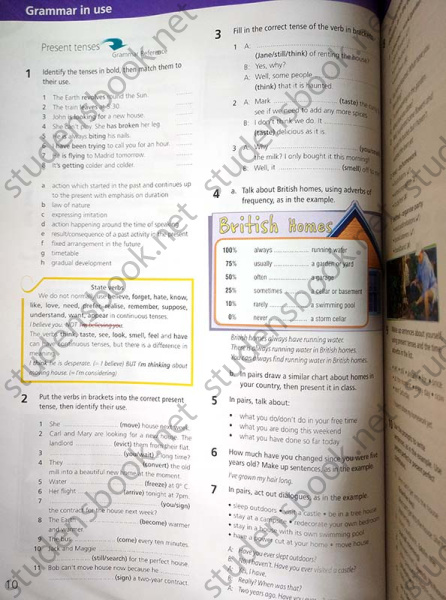 Grammar in use
Present tenses
Grammar Reference
1 Identify the tenses in bold, then match them to
their use.
1 The Earth revolves round the Sun.
2 The train leaves at 8:30.
3 John is looking for a new house.
4 She is in pain. She has broken her leg.
5 He is always biting his nails.
6 I have been trying to call you for an hour.
7 He is flying to Madrid tomorrow.
8 It's getting colder and colder.
a action which started in the past and continues up
to the present with emphasis on duration
b law of nature
c expressing irritation
d action happening around the time of speaking
e result/consequence of a past activity in the present
f fixed arrangement in the future
g timetable
h gradual development
State verbs
We do not normally use believe, forget, hate, know,
like, love, need, prefer, realise, remember, suppose,
understand, want, appear in continuous tenses.
I believe you. NOT I'm believing you.
The verbs think, taste, see, look, smell, feel and have
can be used in continuous tenses, but there is a difference in
I think he is desperate. (= I believe) BUT I'm thinking about
moving house. (= I'm considering)
2 Put the verbs in brackets into the correct present
tense, then identify their use.
1 She (move) house next week.
2 Carl and Mary are looking for a new home. The
landlord (evict) them from their flat.
3 (you/wait) long time?
4 They (convert) the old
mill into a beautiful new home at the moment.
5 Water (freeze) at 0° C.
6 Her flight (arrive) tonight at 7pm.
7 (you/sign)
the contract for the house next week?
8 The Earth (become) warmer
and warmer.
9 The bus (come) every ten minutes.
10 Jack and Maggie
(still/search) for the perfect house.
11 Bob can't move house now because he
(sign) a two-year contract.
10
3 Fill in the correct tense of the verb in brackets.
1 A:
(Jane/still/think) of renting the house?
B: Yes, why?
A: Well, some people
(think) that it is haunted.
2 A: Mark (taste) the
see if we need to add any more spices.
B: I don't think we do. It
(taste) delicious as it is.
3 A: Why
the milk? I only bought it this morning!
B: Well, it (smell) off to me.
4 a. Talk about British homes, using adverbs of
frequency, as in the example.
British Homes
100% always running water
75% usually a garden or yard
50% often a garage
25% sometimes a cellar or basement
10% rarely a swimming pool
0% never a storm cellar
British homes always have running water.
There is always running water in British homes.
You can always find running water in British homes.
b. In pairs draw a similar chart about homes in
your country, then present it in class.
5 In pairs, talk about:
• what you do/don't do in your free time
• what you are doing this weekend
• what you have done so far today
6 How much have you changed since you were five
years old? Make up sentences, as in the example.
I've grown my hair long.
7 In pairs, act out dialogues, as in the example.
• sleep outdoors • in a castle • be in a tree house
• stay at a campsite • redecorate your own bedroom
• stay in a house with its own swimming pool
• have a power cut at your home • move house
A: Have you ever slept outdoors?
B: No, I haven't. Have you ever visited a castle?
A: Yes, I have.
B: Really? When was that?
A: Two years ago. Have you ever
studentsbook.net